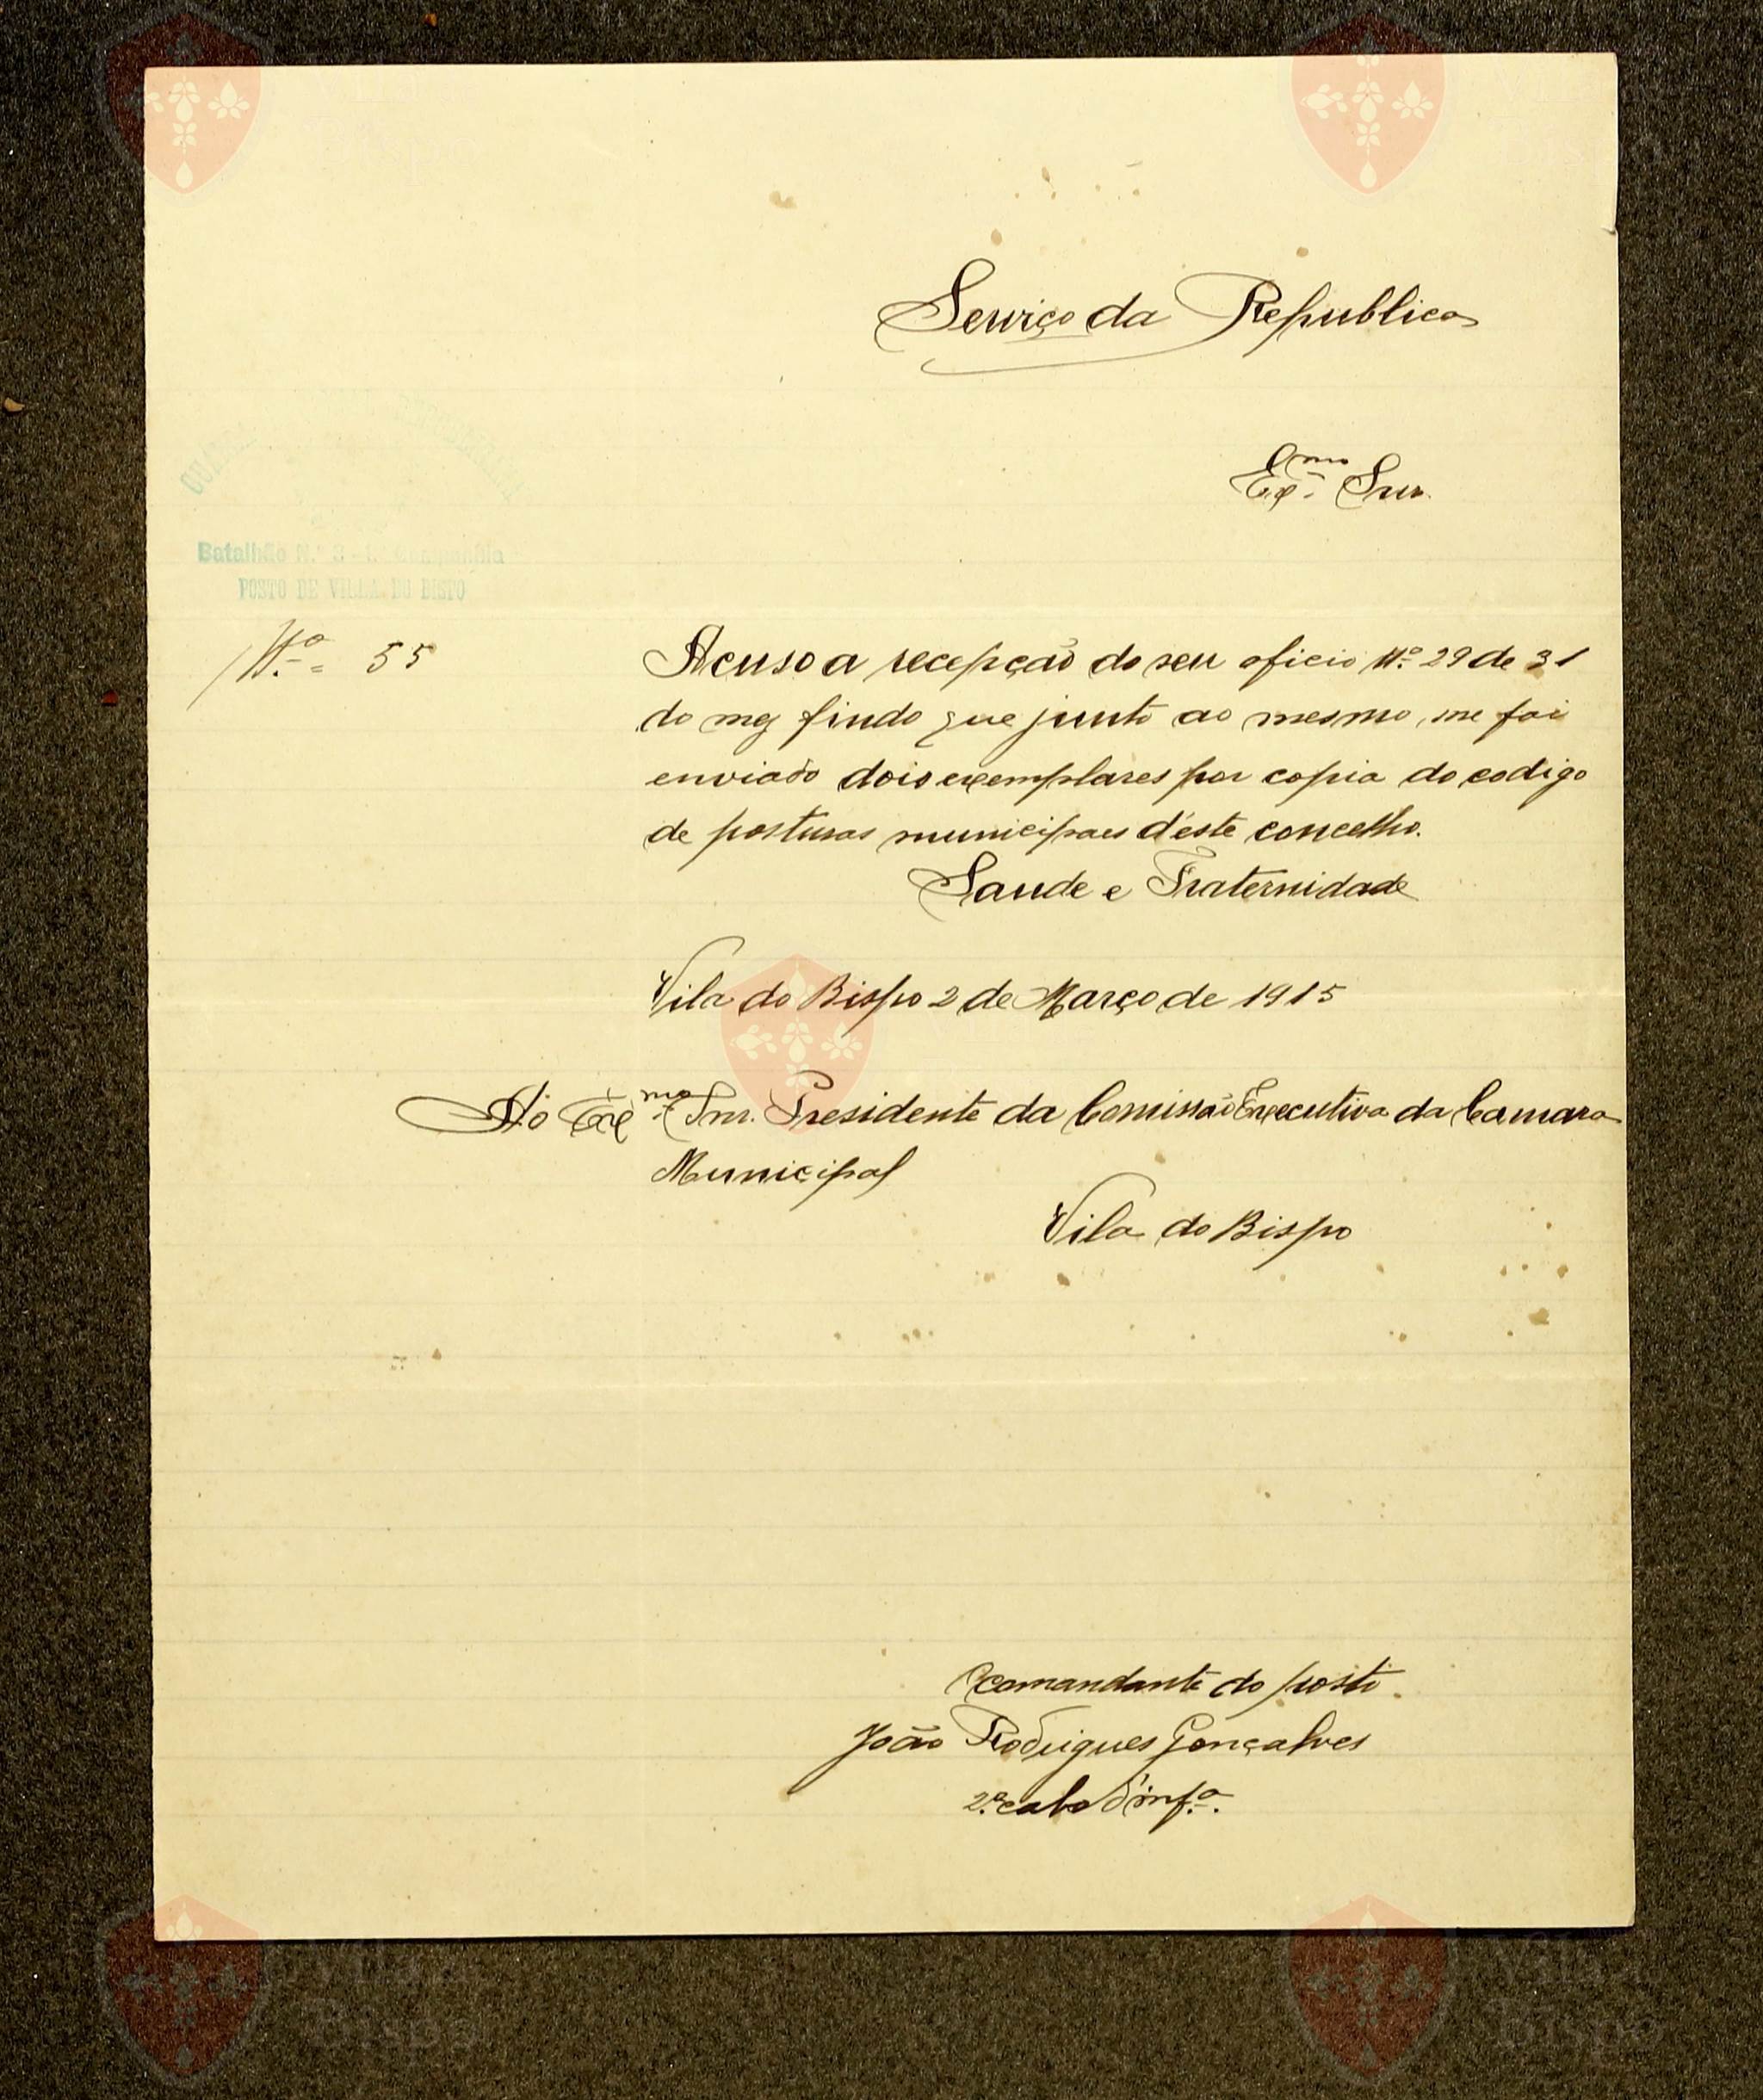 Serviço da Republica
Exmo Snr.
Batalhão N.º 3 - 1.ª Companhia
POSTO DE VILLA DO BISPO
N.º 55
Acuso a recepção do seu oficio N.º 29 de 31
do mez findo que junto ao mesmo, me foi
enviado dois exemplares por copia do codigo
de posturas municipaes d'éste concelho.
Saude e Fraternidade
Vila do Bispo 2 de Março de 1915
Ao Exmo Snr. Presidente da Comissão Executiva da Camara
Municipal
Vila do Bispo
O comandante do posto
João Rodrigues Gonçalves
2.º cabo d'inf.ª.